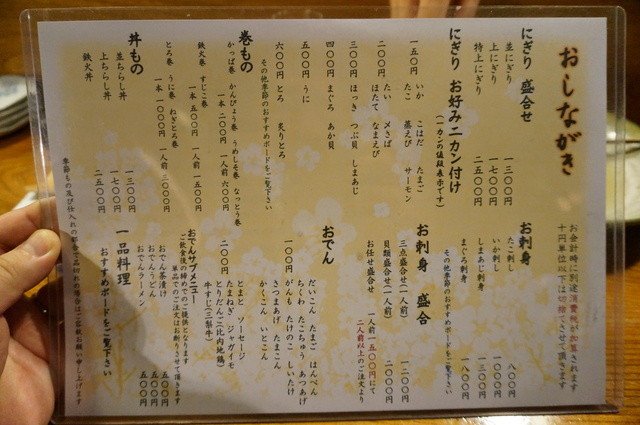 おしながき
お会計時に別途消費税が加算されます
十円単位以下は切捨させて頂きます
にぎり 盛合せ
並にぎり 一三〇〇円
上にぎり 一七〇〇円
特上にぎり 二五〇〇円
にぎり お好み二カン付け
(一カンの値段表示です)
一五〇円 いか こはだ たまご
たこ 蒸えび サーモン
二〇〇円 たい 〆さば
ほたて なまえび
三〇〇円 ほっき つぶ貝 しまあじ
四〇〇円 まぐろ あか貝
五〇〇円 うに
六〇〇円 とろ 炙りとろ
その他季節のおすすめボードをご覧下さい
巻もの
かっぱ巻 かんぴょう巻 うめしそ巻 なっとう巻
一本 二〇〇円 一人前 六〇〇円
鉄火巻 すじこ巻
一本 五〇〇円 一人前 一五〇〇円
とろ巻 うに巻 ねぎとろ巻
一本 一〇〇〇円 一人前 三〇〇〇円
丼もの
並ちらし丼 一三〇〇円
上ちらし丼 一七〇〇円
鉄火丼 二五〇〇円
お刺身
たこ刺し 八〇〇円
いか刺し 一〇〇〇円
しまあじ刺身 一三〇〇円
まぐろ刺身 一八〇〇円
その他季節のおすすめボードをご覧下さい
お刺身 盛合
三点盛合せ(一人前) 一二〇〇円
貝類盛合せ(一人前) 二〇〇〇円
お任せ盛合せ 一人前一五〇〇円にて
二人前以上のご注文より
おでん
一〇〇円 だいこん たまご はんぺん
ちくわ たこちゅう あつあげ
がんも たけのこ しいたけ
さつまあげ たまこん
かくこん いとこん
二〇〇円 とまと ソーセージ
たまねぎ ジャガイモ
とりだんご(比内地鶏)
牛すじ(三梨牛)
おでんサブメニュー
ご飲食後の締めでのご提供となります
単品でのご注文はお断りさせて頂きます
おでん茶漬け 五〇〇円
おでんうどん 五〇〇円
おでんラーメン 五〇〇円
一品料理
おすすめボードをご覧下さい
季節もの及び仕入れの都合で品切れの場合はご容赦お願い申し上げます